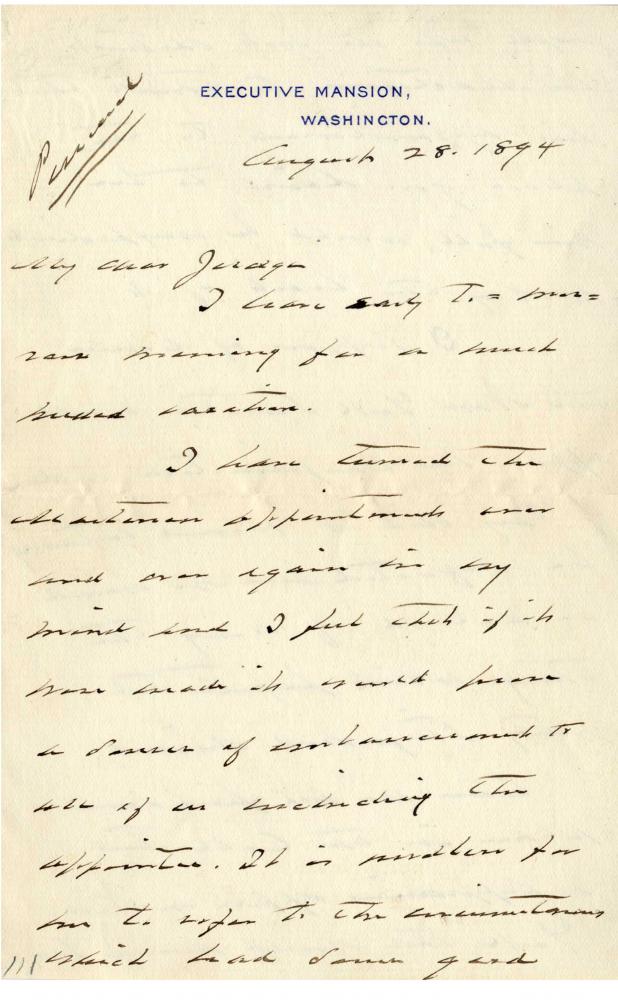 Personal
EXECUTIVE MANSION,
WASHINGTON.
August 28. 1894
My dear Judge
I leave early to=mor=
row morning for a much
needed vacation.
I have turned the
appointment over
and over again in my
mind and I feel that if it
were made it would prove
a source of embarrassment to
all of us including the
appointee. It is needless for
me to refer to the circumstances
which lead some good